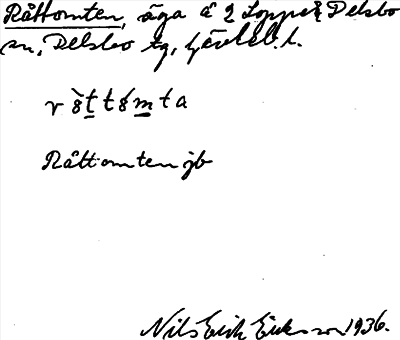 Råttomten, äga å 2 Loppet Delsbo
sn, Delsbo tg, Gävleb. l.
Råttomten jb
Nils Erik Eriksson 1936.